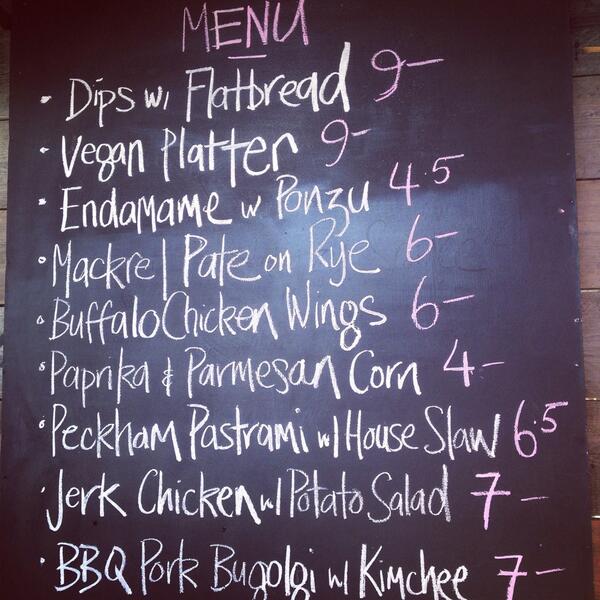 MENU
· Dips w/ Flatbread 9-
· Vegan Platter 9-
· Endamame w Ponzu 4.5
· Mackrel Pate on Rye 6-
· Buffalo Chicken Wings 6-
· Paprika & Parmesan Corn 4-
· Peckham Pastrami w/ House Slaw 6.5
· Jerk Chicken w/ Potato Salad 7-
· BBQ Pork Bugolgi w/ Kimchee 7-